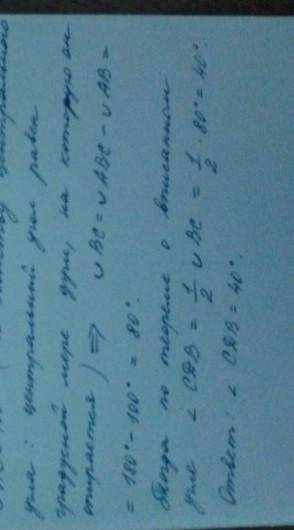 свойству центрального
угла: центральный угол равен
градусной мере дуги, на которую он
опирается) ⇒ ∪BC = ∪ABC - ∪AB =
= 180° - 100° = 80°.
Тогда по теореме о вписанном
угле ∠CAB = 1/2 ∪BC = 1/2 · 80° = 40°.
Ответ: ∠CAB = 40°.